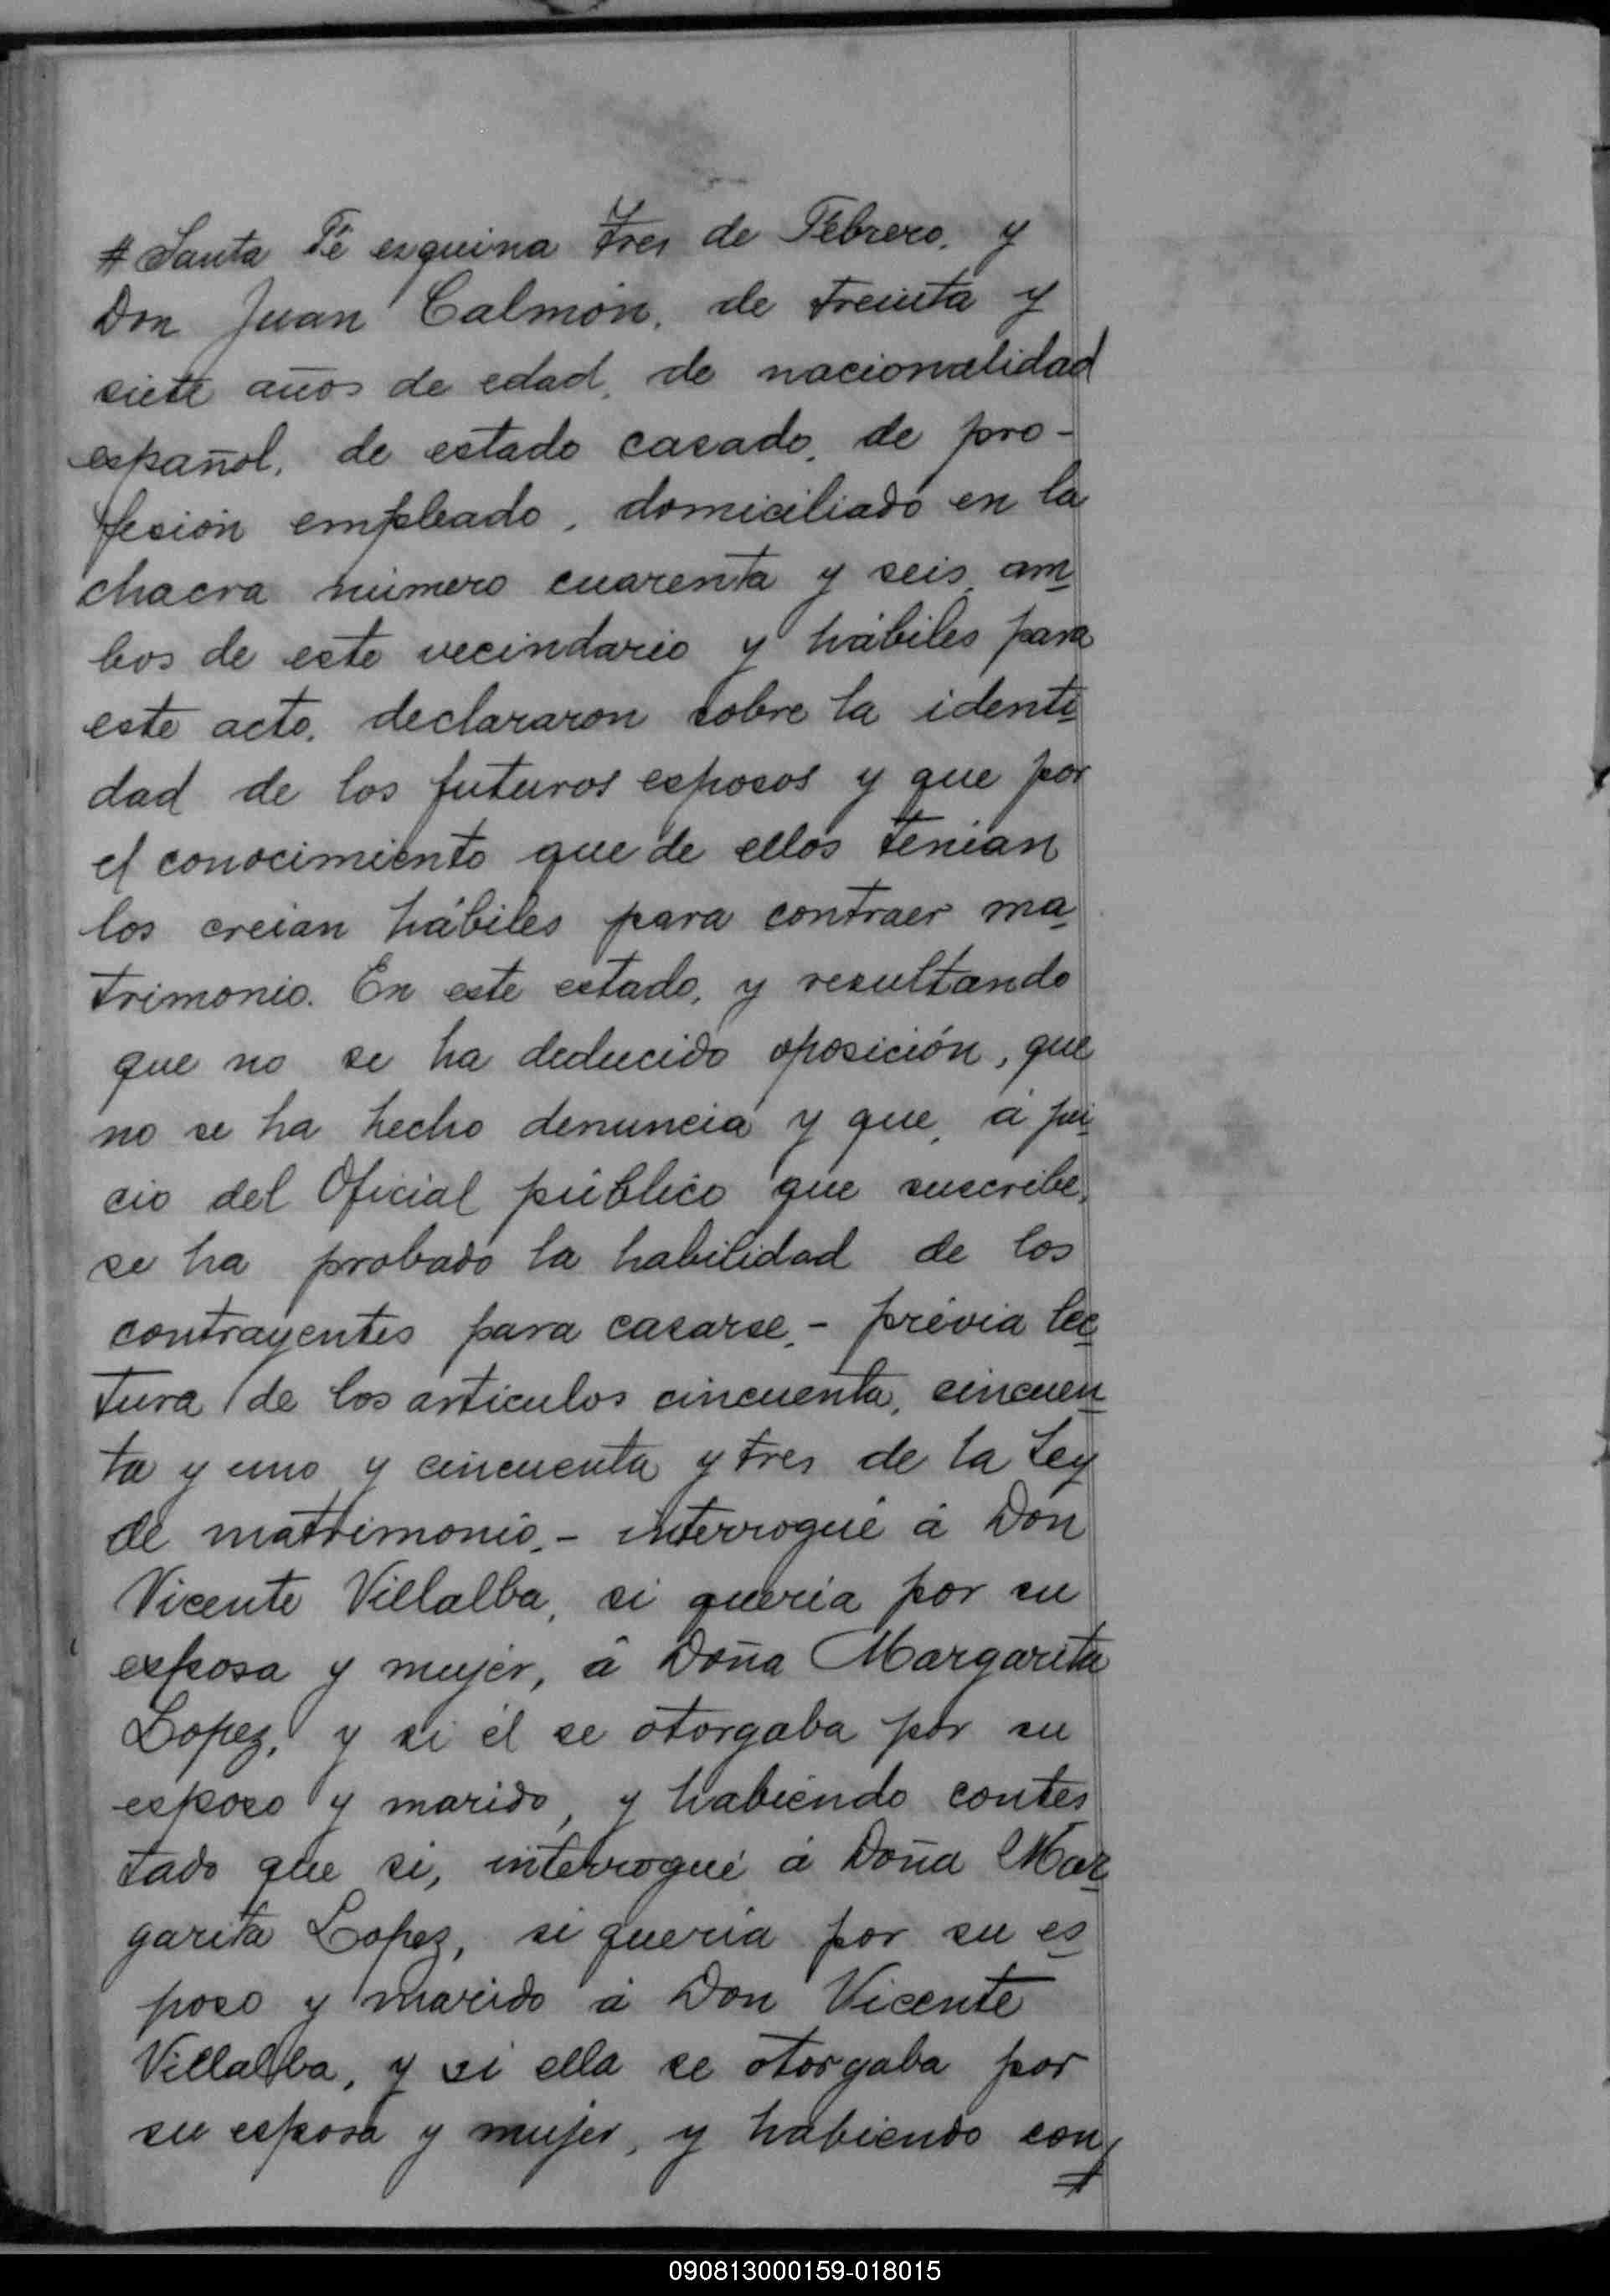 # Santa Fé esquina Tres de Febrero, y
Don Juan Calmón, de treinta y
siete años de edad, de nacionalidad
español, de estado casado, de pro-
fesión empleado, domiciliado en la
chacra número cuarenta y seis, am-
bos de este vecindario y hábiles para
este acto, declararon sobre la identi-
dad de los futuros esposos y que por
el conocimiento que de ellos tenían
los creían hábiles para contraer ma-
trimonio. En este estado, y resultando
que no se ha deducido oposición, que
no se ha hecho denuncia y que, á jui-
cio del Oficial público que suscribe,
se ha probado la habilidad de los
contrayentes para casarse,- prévia lec-
tura de los artículos cincuenta, cincuen-
ta y uno y cincuenta y tres de la Ley
de matrimonio,- interrogué á Don
Vicente Villalba, si quería por su
esposa y mujer, á Doña Margarita
Lopez, y si él se otorgaba por su
esposo y marido, y habiendo contes
tado que sí, interrogué á Doña Mar-
garita Lopez, si quería por su es-
poso y marido á Don Vicente
Villalba, y si ella se otorgaba por
su esposa y mujer, y habiendo con/
#
090813000159-018015